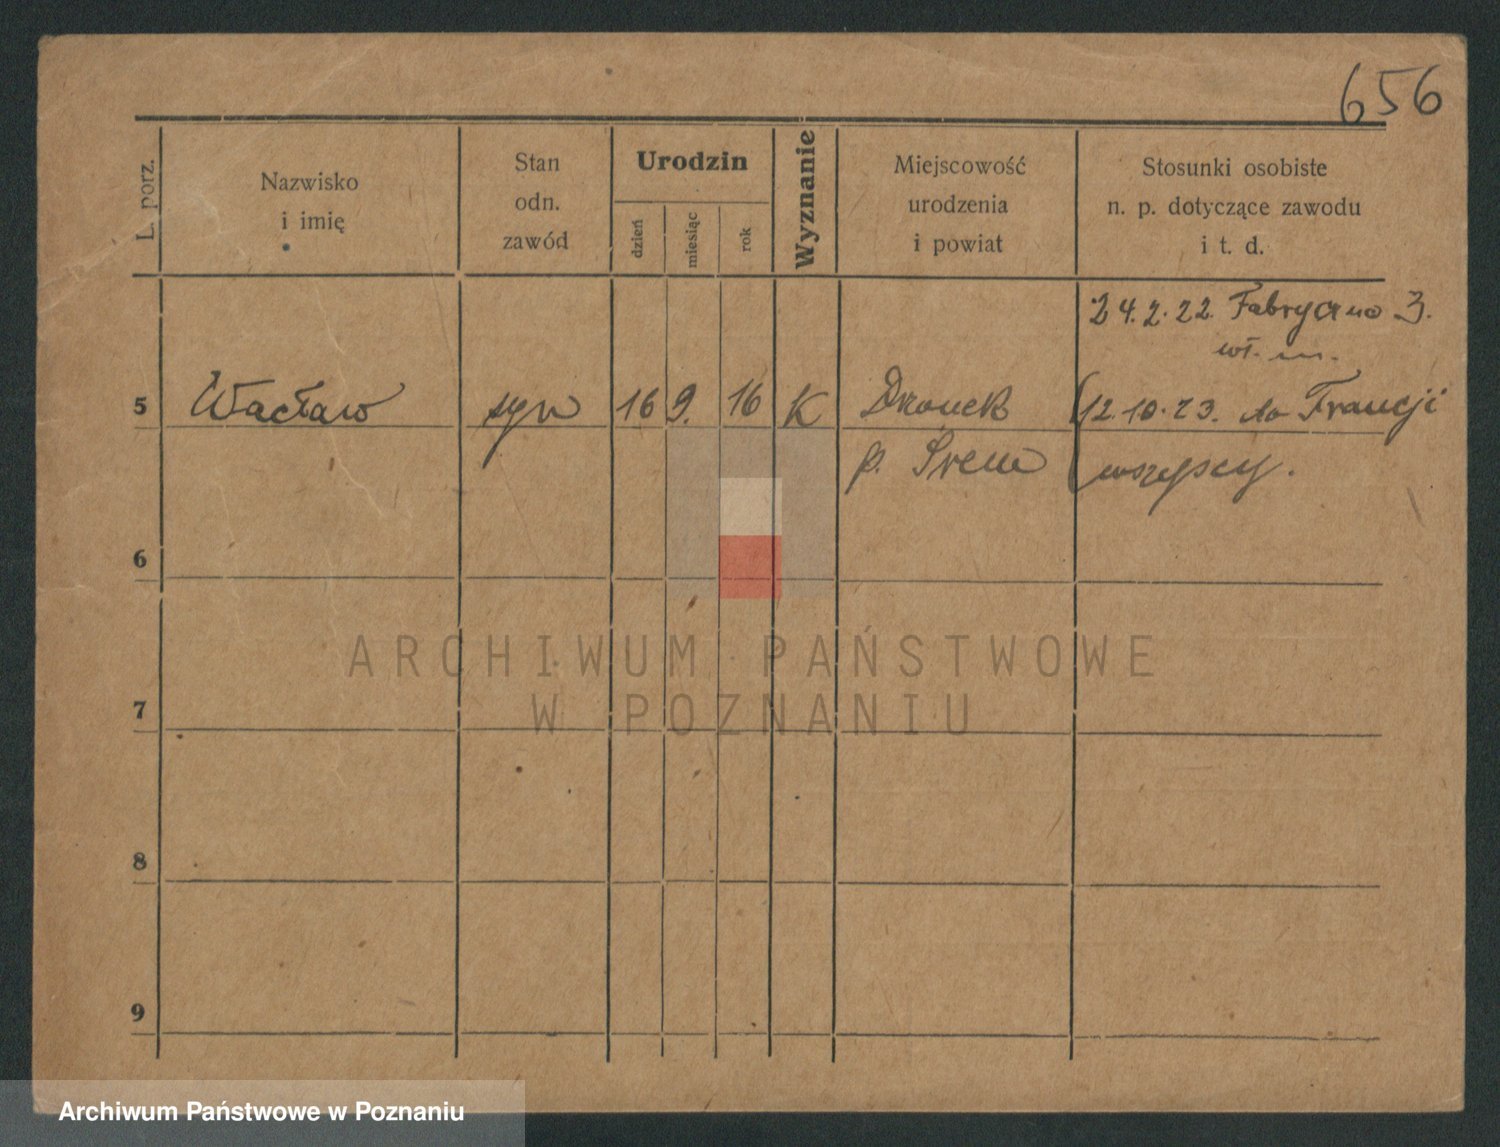 656
L. porz.
Nazwisko
i imię
Stan
odn.
zawód
Urodzin
dzień
miesiąc
rok
Wyznanie
Miejscowość
urodzenia
i powiat
Stosunki osobiste
n. p. dotyczące zawodu
i t. d.
24.2.22. Fabryczno 3.
wł. m.
5 Wacław syn 16 9. 16 K 12.10.23. do Francji
p. Śrem wszyscy.
6
ARCHIWUM PAŃSTWOWE
W POZNANIU
7
8
9
Archiwum Państwowe w Poznaniu